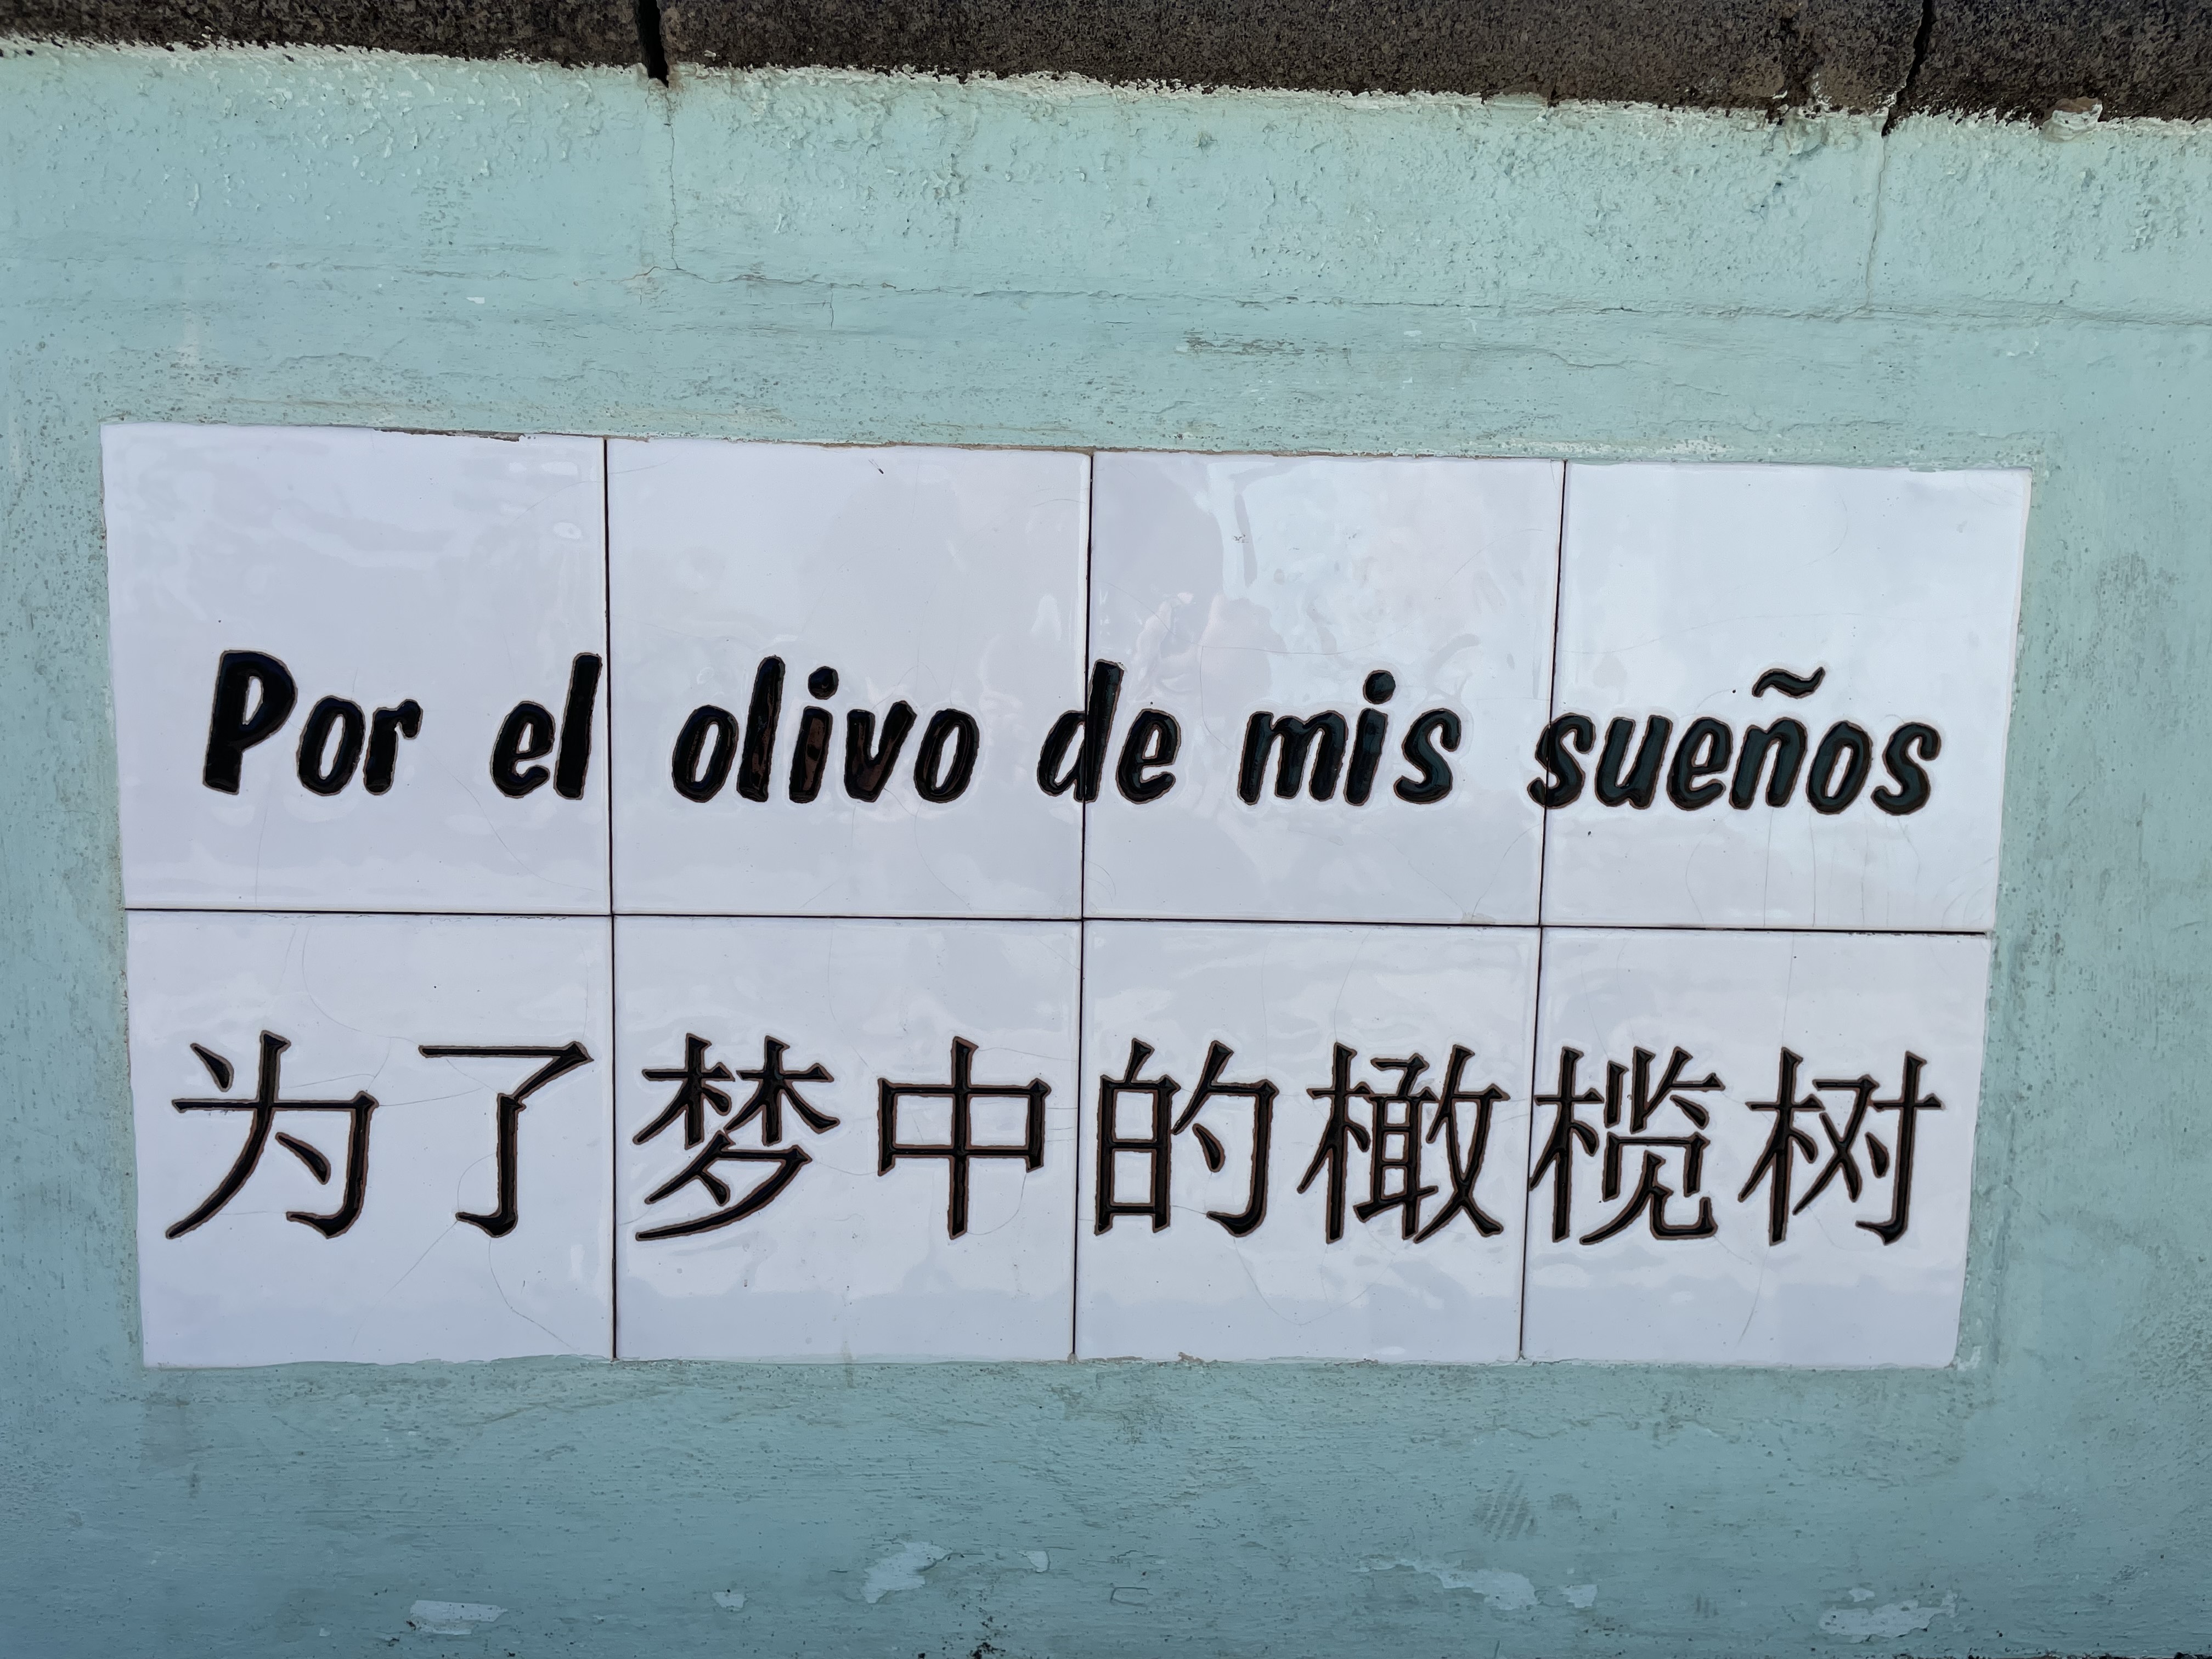 Por el olivo de mis sueños
为了梦中的橄榄树